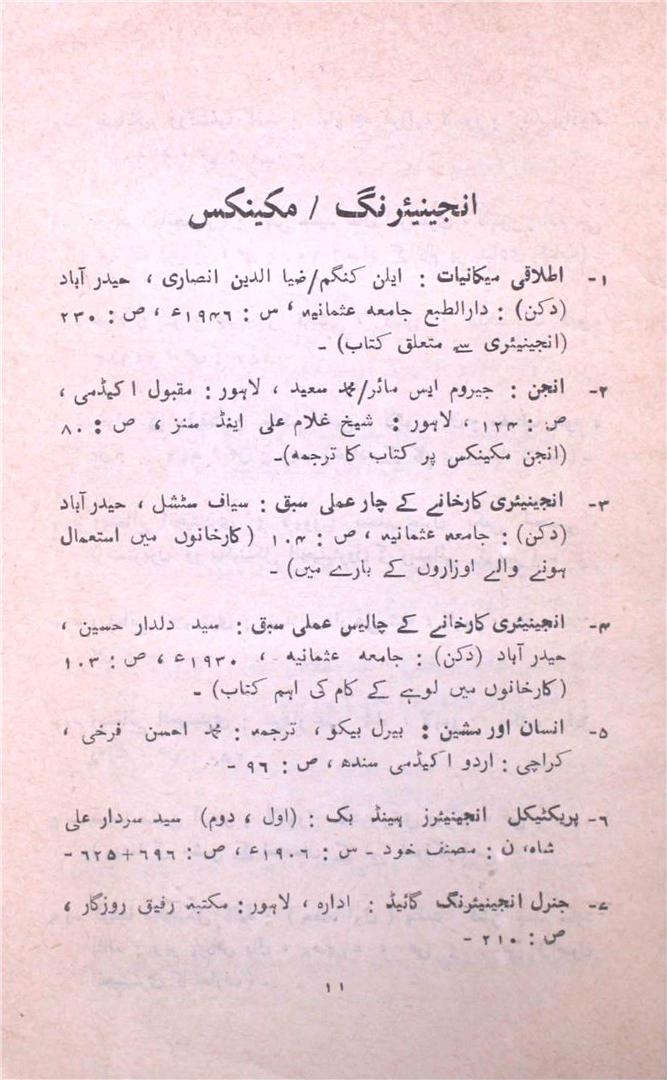 انجینیئرنگ / مکینکس
۱- اطلاقی میکانیات : ایلن کنگم/ضیا الدین انصاری ، حیدر آباد
(دکن) : دارالطبع جامعہ عثمانیہ ، س : ۱۹۴۶ء ، ص : ۲۳۰
(انجینیئری سے متعلق کتاب) -
۲- انجن : جیروم ایس مائر/محمد سعید ، لاہور : مقبول اکیڈمی ،
ص : ۱۲۴ ، لاہور : شیخ غلام علی اینڈ سنز ، ص : ۸۰
(انجن مکینکس پر کتاب کا ترجمہ)-
۳- انجینیئری کارخانے کے چار عملی سبق : سیاف سٹشل ، حیدر آباد
(دکن) : جامعہ عثمانیہ ، ص : ۱۰۴ (کارخانوں میں استعمال
ہونے والے اوزاروں کے بارے میں) -
۴- انجینیئری کارخانے کے چالیس عملی سبق : سید دلدار حسین ،
حیدر آباد (دکن) : جامعہ عثمانیہ ، ۱۹۳۰ء ، ص : ۱۰۳
(کارخانوں میں لوہے کے کام کی اہم کتاب) -
۵- انسان اور مشین : بیرل بیکو ، ترجمہ : محمد احسن فرخی ،
کراچی : اردو اکیڈمی سندھ ، ص : ۹۶ -
۶- پریکٹیکل انجینیئرز ہینڈ بک : (اول ، دوم) سید سردار علی
شاہ، ن : مصنف خود - س : ۱۹۰۶ء ، ص : ۶۹۶+۶۲۵ -
۷- جنرل انجینیئرنگ گائیڈ : ادارہ ، لاہور : مکتبہ رفیق روزگار ،
ص : ۲۱۰ -
۱۱